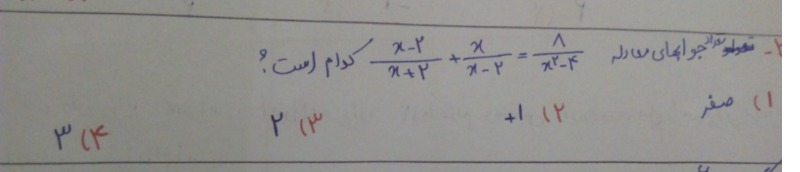 ۲- تعداد جوابهای معادله x-۲/x+۲ + x/x-۲ = ۸/x^۲-۴ کدام است؟
۱) صفر ۲) ۱+ ۳) ۲ ۴) ۳